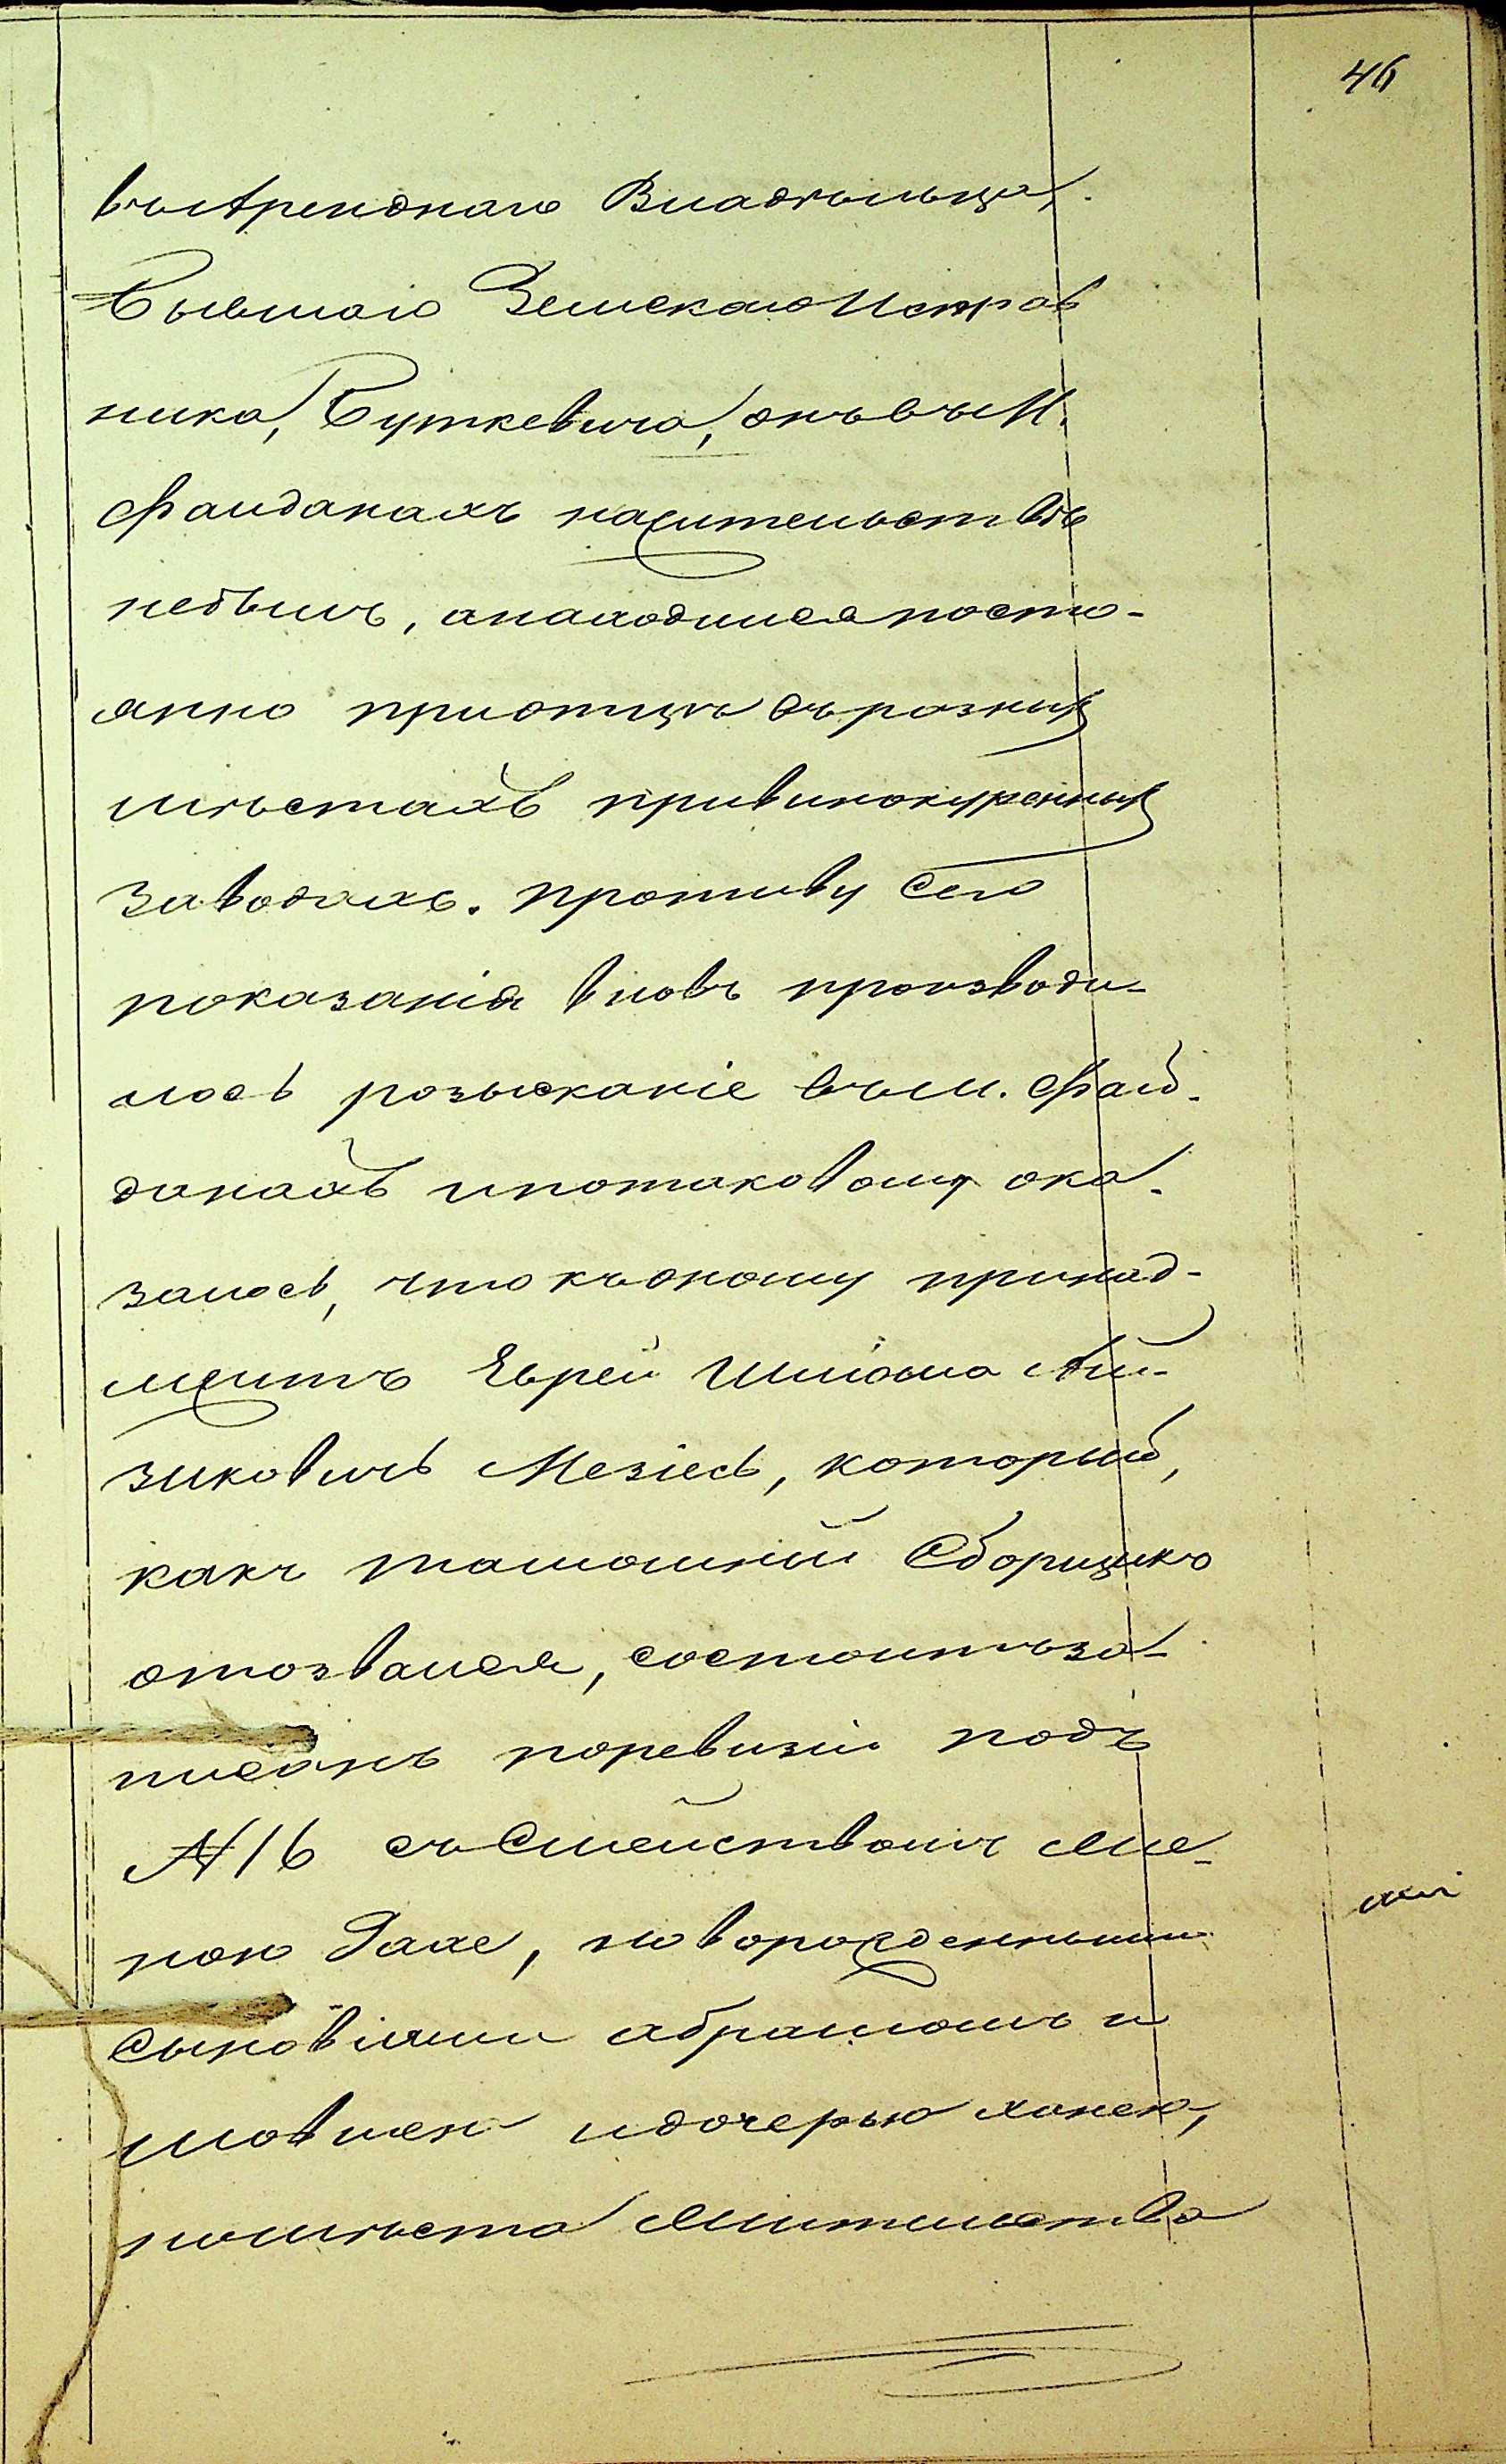 46
въ Арендного Владѣльца,
Бывшаго Земскаго Исправ
ника, Буткевича, онъ въ М.
Файданахъ нажительствѣ
небылъ, а находился посто-
янно при отцѣ въ разных
мѣстахъ при винокуренных
заводахъ. противу сего
показанія вновь производи-
лось розысканіе въ м. Фай-
данахъ и по таковому ока-
залось, что къ оному принад-
лежитъ Еврей Шліома Ай-
зиковичь Мезіесъ, который,
какъ тамошній Сборщикъ
отозвался, состоитъ за-
писанъ поревизіи подъ
№ 16 съ Семействомъ же-
ною Гаае, новорожденными
сыновіями абрамомъ и
мовшею и дочерью ханею,
но мѣста жительства